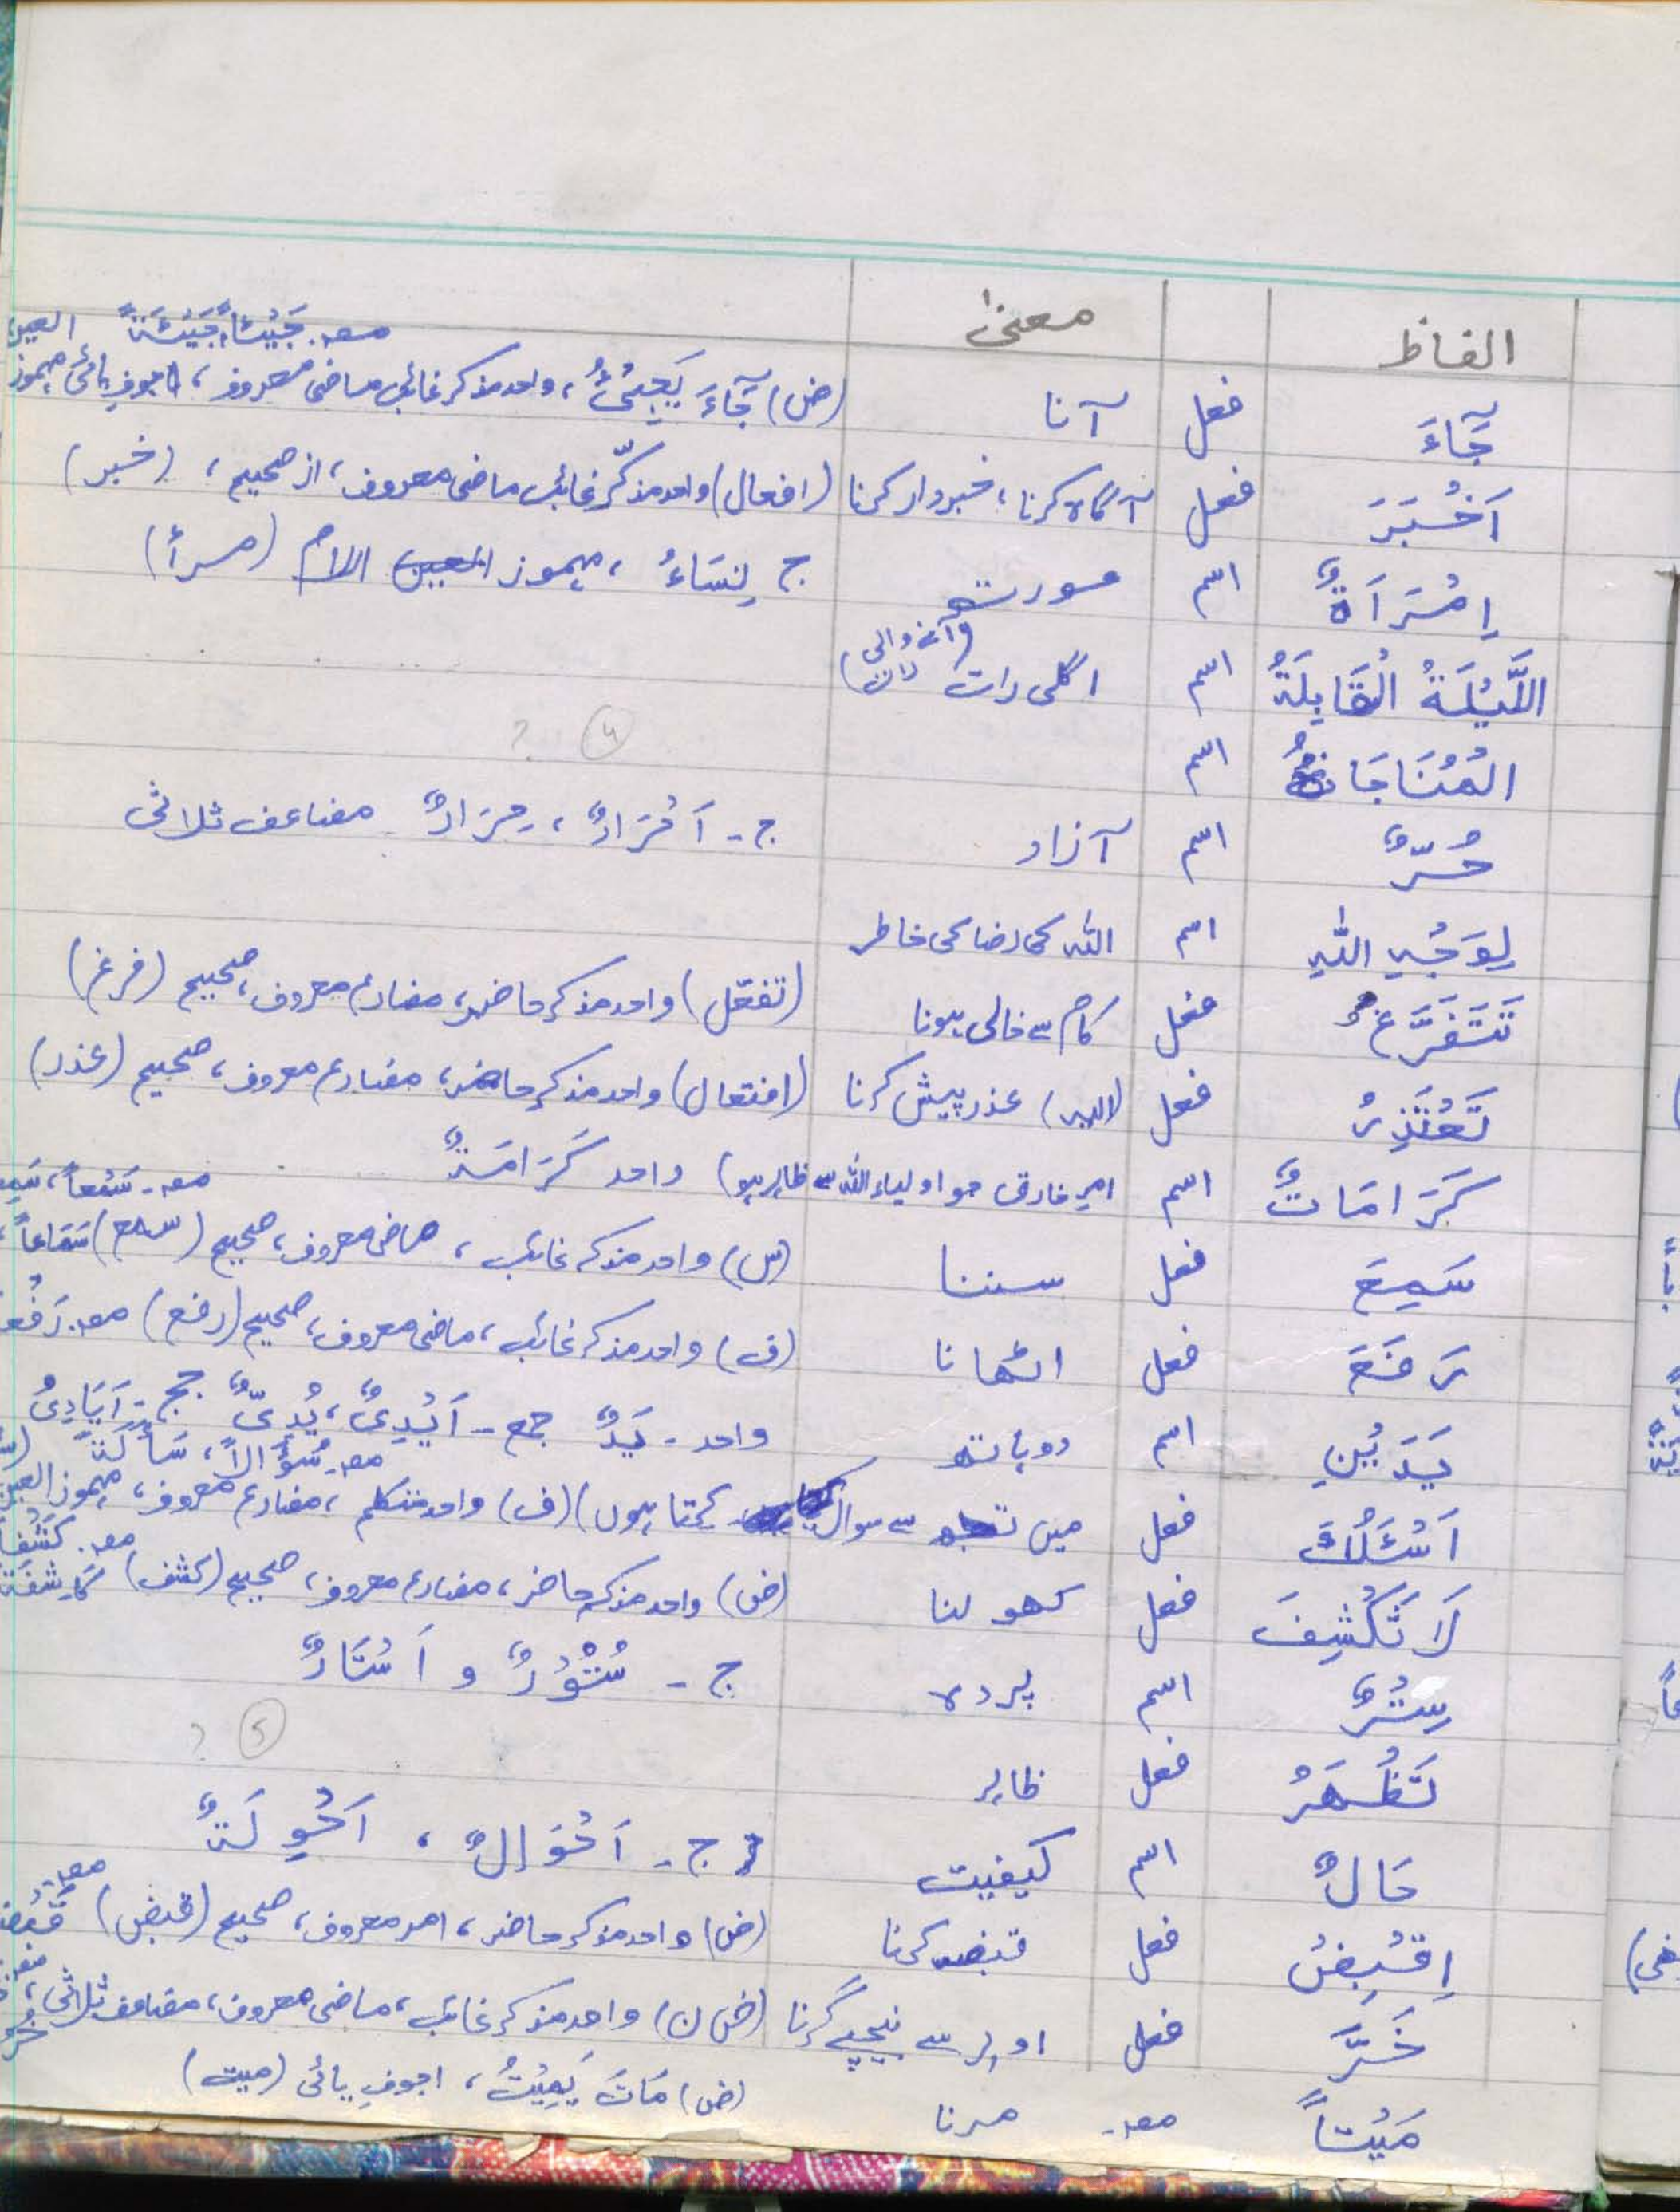 الفاظ معنیٰ
مصد. جَيْئًا، جَيْئَةً العین
جَآءَ فعل آنا (ض) جَآءَ يَجِيْئُ، واحد مذکر غائب ماضی معروف، اجوفِ یائی مہموز
اَخْبَرَ فعل آگاہ کرنا، خبردار کرنا (افعال) واحد مذکّر غائب ماضی معروف، از صحیح، (خبر)
اِمْرَاَةٌ اسم عورت ج نِسَاءُ، مہموز العین اللام (مرأ)
اللَّيْلَةُ الْقَابِلَةُ اسم اگلی رات (آنے والی رات)
المُنَاجَاةُ اسم ؟
حُرٌّ اسم آزاد ج - اَحْرَارٌ، حِرَارٌ مضاعف ثلاثی
لِوَجْهِ اللهِ اسم اللہ کی رضا کی خاطر
تَتَفَرَّغُ فعل کام سے خالی ہونا (تفعّل) واحد مذکر حاضر، مضارع معروف، صحیح (فرغ)
تَعْتَذِرُ فعل (الیہ) عذر پیش کرنا (افتعال) واحد مذکر حاضر، مضارع معروف، صحیح (عذر)
كَرَامَاتٌ اسم امرِ خارق جو اولیاء اللہ سے ظاہر ہو) واحد كَرَامَةٌ
مصد - سَمْعاً،
سَمِعَ فعل سننا (س) واحد مذکر غائب، ماضی معروف، صحیح (سمع) سَمَاعاً،
رَفَعَ فعل اٹھانا (ف) واحد مذکر غائب، ماضی معروف، صحیح (رفع) مصد.
يَدَيْنِ اسم دو ہاتھ واحد - يَدٌ جمع - اَيْدِیٌ، يُدِیٌّ جج - اَيَادِیُ
مصد. سُؤَالاً، سَأْلَةً
اَسْئَلُكَ فعل میں تجھ سے سوال کرتا ہوں) (ف) واحد متکلم، مضارع معروف، مہموز العین
مصد. كَشْفًا
لَا تَكْشِفَ فعل کھولنا (ض) واحد مذکر حاضر، مضارع معروف، صحیح (کشف) كَاشِفَةً
سِتْرٌ اسم پردہ ج - سُتُوْرٌ و اَسْتَارٌ
تَظْهَرُ فعل ظاہر ؟
حَالٌ اسم کیفیت ج - اَحْوَالٌ، اَحْوِلَةٌ
اِقْبِضْ فعل قبضہ کرنا (ض) واحد مذکر حاضر، امر معروف، صحیح (قبض)
خَرَّ فعل اوپر سے نیچے گرنا (ض ن) واحد مذکر غائب، ماضی معروف، مضاعف ثلاثی،
مَيْتاً مصد. مرنا (ض) مَاتَ يَمِيْتُ، اجوفِ یائی (میت)